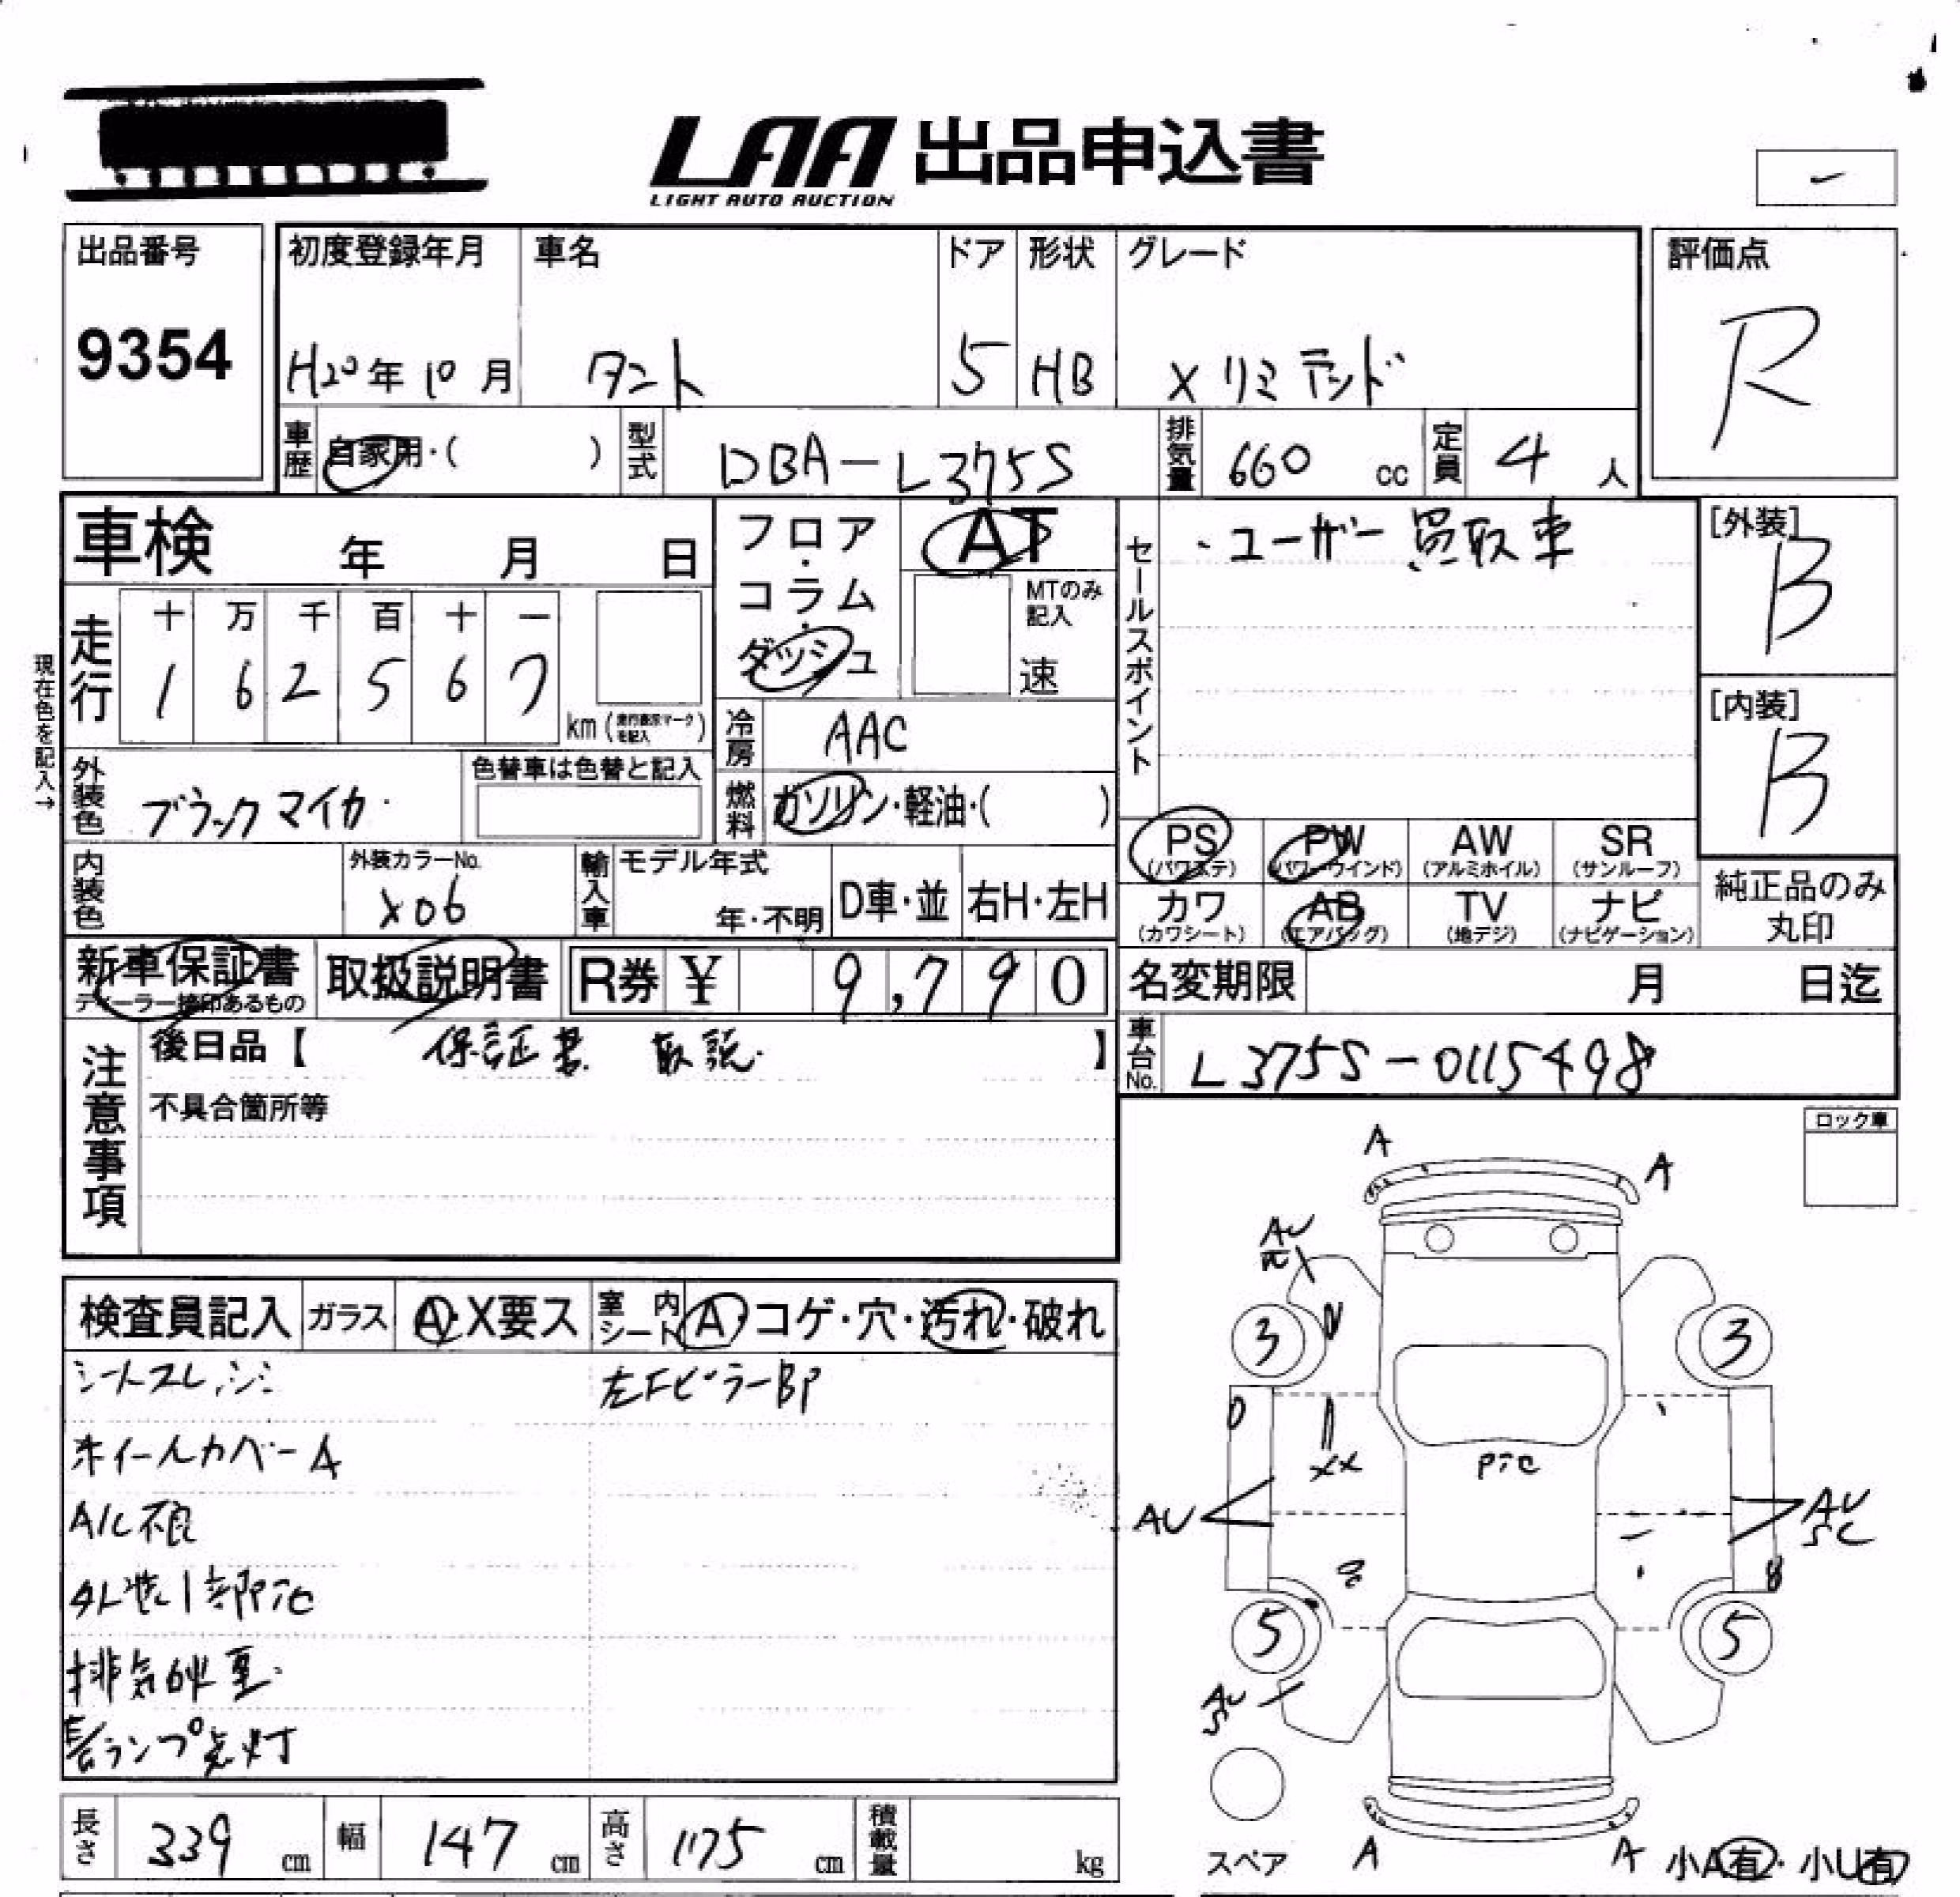 LAA 出品申込書
LIGHT AUTO AUCTION
出品番号
9354
初度登録年月
H20年10月
車名
タント
ドア
5
形状
HB
グレード
Xリミテッド
評価点
R
車歴
自家用・( )
型式
DBA-L375S
排気量
660 cc
定員
4 人
車検 年 月 日
フロア・コラム・ダッシュ
AT
MTのみ記入
速
セールスポイント
・ユーザー買取車
[外装]
B
[内装]
B
現在色を記入→
走行
十 万 千 百 十 一
1 6 2 5 6 7
km(走行表示マークを記入)
冷房
AAC
燃料
ガソリン・軽油・( )
外装色
ブラックマイカ
色替車は色替と記入
内装色
外装カラーNo.
X06
輸入車
モデル年式
年・不明
D車・並
右H・左H
PS (パワステ)
PW (パワーウインド)
AW (アルミホイル)
SR (サンルーフ)
カワ (カワシート)
AB (エアバッグ)
TV (地デジ)
ナビ (ナビゲーション)
純正品のみ丸印
新車保証書
ディーラー捺印あるもの
取扱説明書
R券 ¥ 9,790
名変期限 月 日迄
車台No.
L375S-0115498
注意事項
後日品【 保証書 取説 】
不具合箇所等
ロック車
検査員記入
ガラス
A・X要ス
室内シート
A・コゲ・穴・汚れ・破れ
シートスレ、シミ
左FピラーBP
ホイールカバーA
A/C不良
外装1部
排気
ランプ点灯
A
A
AU
3
3
XX
AU
AU
5
5
AU
S
スペア
A
A
小A有・小U有
長さ
339 cm
幅
147 cm
高さ
175 cm
積載量
kg